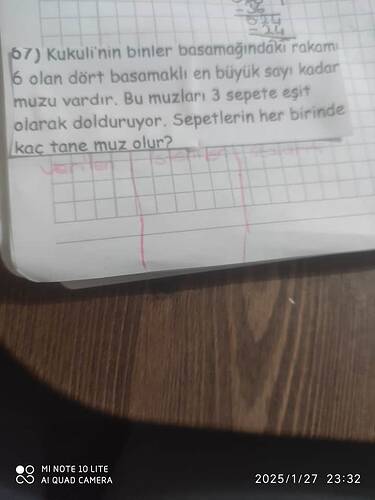 56
024
24
67) Kukuli'nin binler basamağındaki rakamı
6 olan dört basamaklı en büyük sayı kadar
muzu vardır. Bu muzları 3 sepete eşit
olarak dolduruyor. Sepetlerin her birinde
kaç tane muz olur?
veriler
MI NOTE 10 LITE
AI QUAD CAMERA
2025/1/27 23:32